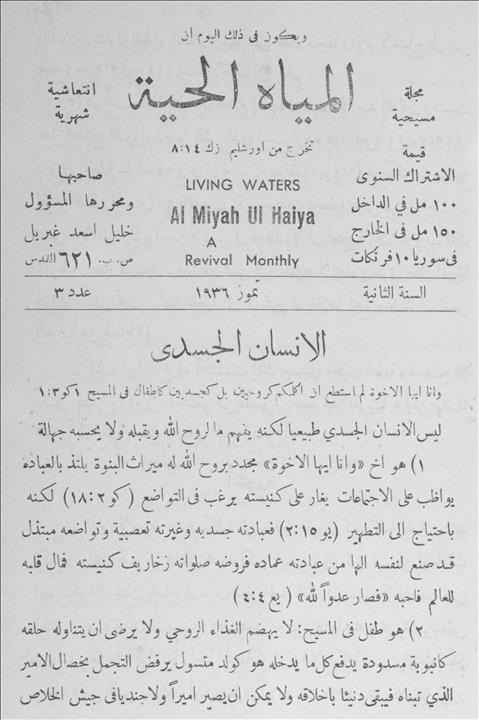 ويكون في ذلك اليوم ان
المياه الحية
مجلة
مسيحية
انتعاشية
شهرية
تخرج من اورشليم زك ٨:١٤
قيمة
الاشتراك السنوى
١٠٠ مل في الداخل
١٥٠ مل فى الخارج
فى سوريا ١٠ فرنكات
LIVING WATERS
Al Miyah Ul Haiya
A
Revival Monthly
صاحبها
ومحررها المسؤول
خليل اسعد غبريل
ص. ب. ٦٢١ القدس
السنة الثانية تموز ١٩٣٦ عدد ٣
الانسان الجسدى
وانا ايها الاخوة لم استطع ان اكلمكم كروحيين بل كجسديين كاطفال فى المسيح ١كو٣:١
ليس الانسان الجسدي طبيعيا لكنه يفهم ما لروح الله ويقبله ولا يحسبه جهالة
١) هو اخ «وانا ايها الاخوة» مجدد بروح الله له ميراث البنوة يلتذ بالعباده
يواظب على الاجتماعات يغار على كنيسته يرغب فى التواضع (كو ٢:١٨) لكنه
باحتياج الى التطهير (يو ١٥:٢) فعبادته جسديه وغيرته تعصبية وتواضعه مبتذل
قد صنع لنفسه الها من عبادته عماده فروضه صلواته زخاريف كنيسته فمال قلبه
للعالم فاحبه «فصار عدواً لله» (يع ٤:٤)
٢) هو طفل فى المسيح: لا يهضم الغذاء الروحي ولا يرضى ان يتناوله حلقه
كانبوبة مسدودة يدفع كل ما يدخله هو كولد متسول يرفض التجمل بخصال الامير
الذي تبناه فيبقى دنيئا باخلاقه ولا يمكن ان يصير اميراً ولا جنديا فى جيش الخلاص